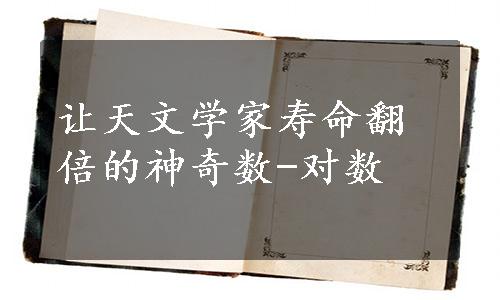 让天文学家寿命翻
倍的神奇数-对数